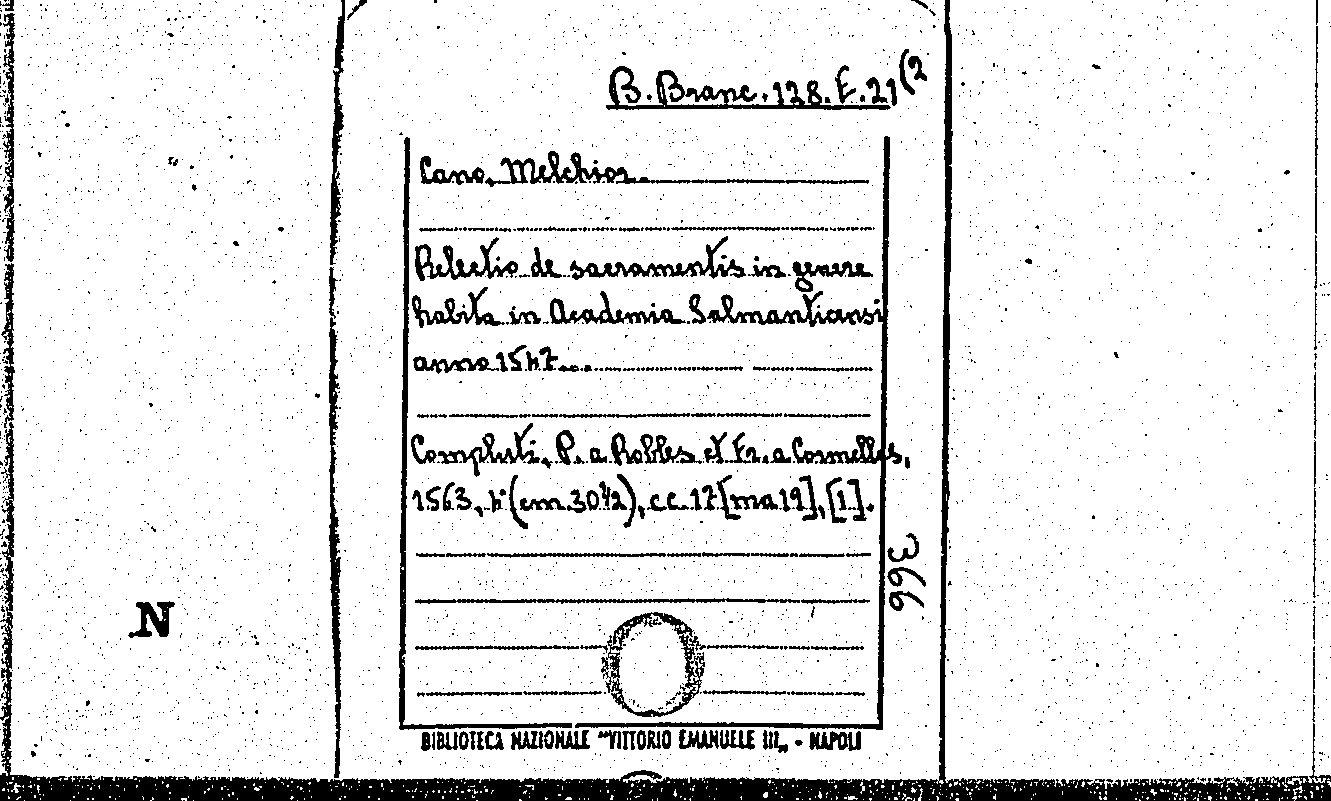 B. Branc. 128. E. 21(2
Cano, Melchior.
Relectio de sacramentis in genere
habita in Academia Salmanticensi
anno 1547...
Compluti, P. a Robles et Fr. a Cormelles,
1563, 4° (cm. 30½), cc. 17 [ma 19], [1].
366
N
BIBLIOTECA NAZIONALE "VITTORIO EMANUELE III„ - NAPOLI